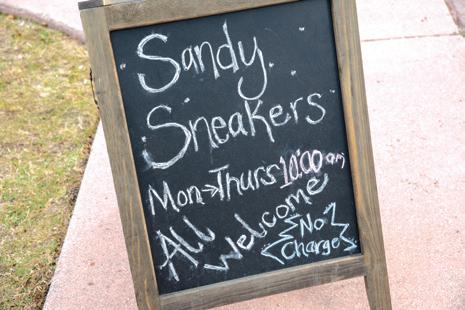 Sandy
Sneakers
Mon→Thurs 10:00 am
All Welcome
No
Charge